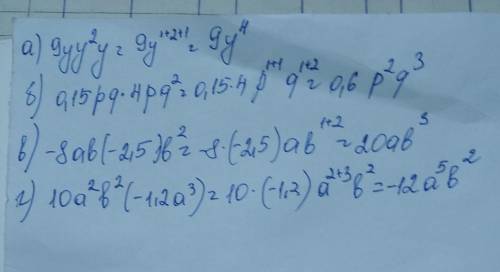 а) 9yy²y = 9y¹⁺²⁺¹ = 9y⁴
б) 0,15pq·4pq² = 0,15·4 p¹⁺¹ q¹⁺² = 0,6 p²q³
в) -8ab(-2,5)b² = -8·(-2,5) ab¹⁺² = 20ab³
г) 10a²b²(-1,2a³) = 10·(-1,2) a²⁺³b² = -12a⁵b²